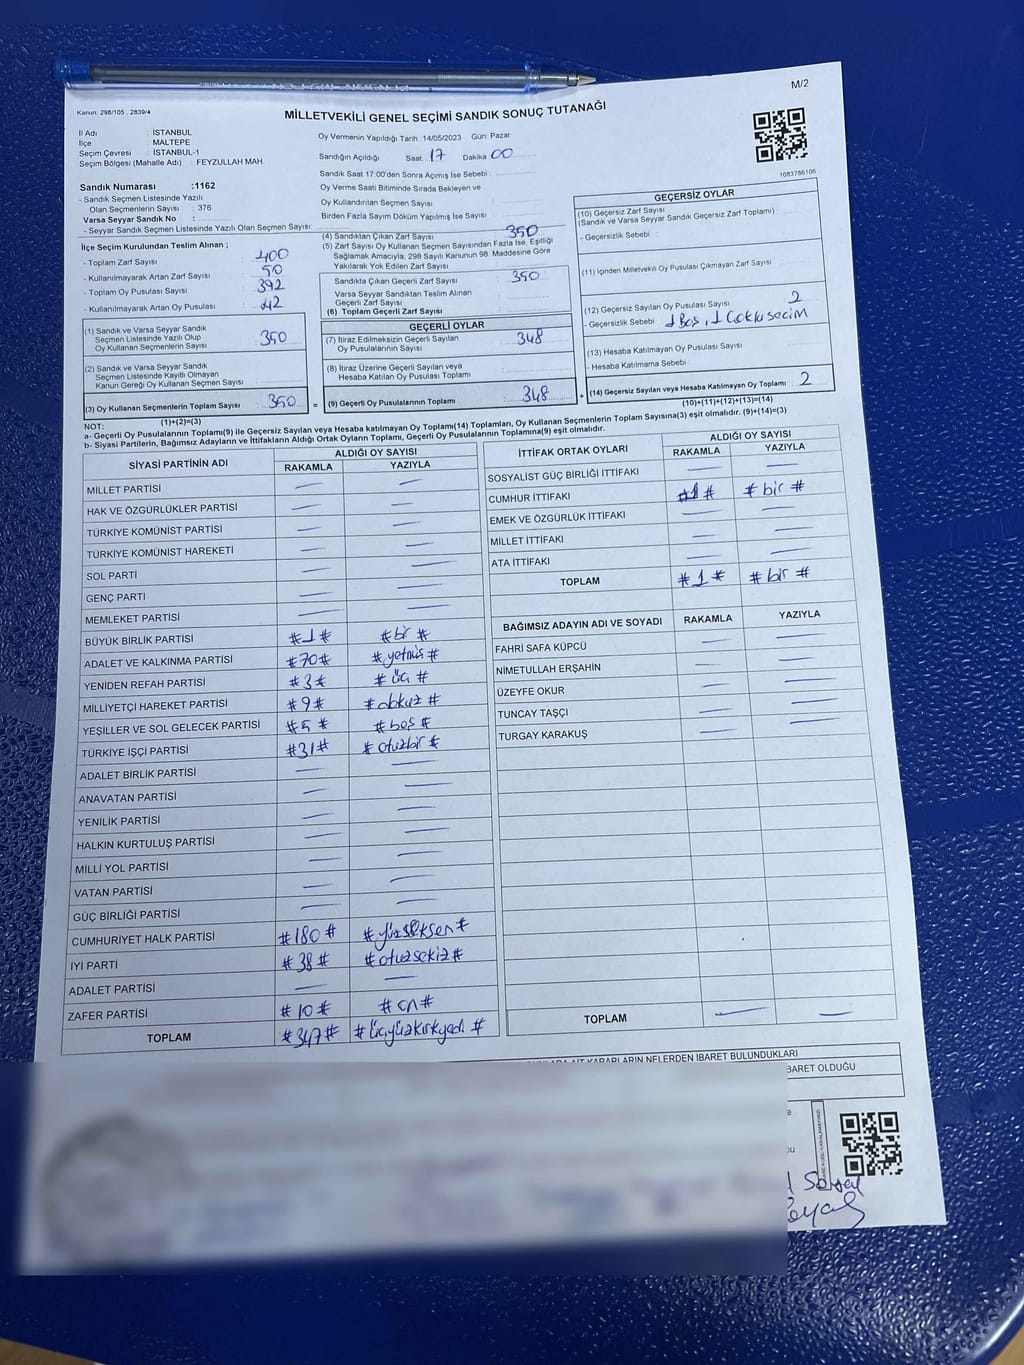 M/2
Kanun: 298/105 , 2839/4
MİLLETVEKİLİ GENEL SEÇİMİ SANDIK SONUÇ TUTANAĞI
İl Adı : İSTANBUL
İlçe : MALTEPE
Seçim Çevresi : İSTANBUL-1
Seçim Bölgesi (Mahalle Adı) : FEYZULLAH MAH.
Sandık Numarası :1162
- Sandık Seçmen Listesinde Yazılı
Olan Seçmenlerin Sayısı : 376
Varsa Seyyar Sandık No :
- Seyyar Sandık Seçmen Listesinde Yazılı Olan Seçmen Sayısı:
Oy Vermenin Yapıldığı Tarih :14/05/2023 Gün: Pazar
Sandığın Açıldığı Saat 17 Dakika 00
Sandık Saat 17:00'den Sonra Açılmış İse Sebebi :
Oy Verme Saati Bitiminde Sırada Bekleyen ve
Oy Kullandırılan Seçmen Sayısı :
Birden Fazla Sayım Döküm Yapılmış İse Sayısı :
1083786106
İlçe Seçim Kurulundan Teslim Alınan ;
- Toplam Zarf Sayısı : 400
- Kullanılmayarak Artan Zarf Sayısı : 50
- Toplam Oy Pusulası Sayısı : 392
- Kullanılmayarak Artan Oy Pusulası : 42
(1) Sandık ve Varsa Seyyar Sandık
Seçmen Listesinde Yazılı Olup
Oy Kullanan Seçmenlerin Sayısı : 350
(2) Sandık ve Varsa Seyyar Sandık
Seçmen Listesinde Kayıtlı Olmayan
Kanun Gereği Oy Kullanan Seçmen Sayısı :
(3) Oy Kullanan Seçmenlerin Toplam Sayısı : 350
(1)+(2)=(3)
(4) Sandıktan Çıkan Zarf Sayısı : 350
(5) Zarf Sayısı Oy Kullanan Seçmen Sayısından Fazla İse, Eşitliği
Sağlamak Amacıyla, 298 Sayılı Kanunun 98. Maddesine Göre
Yakılarak Yok Edilen Zarf Sayısı :
Sandıkta Çıkan Geçerli Zarf Sayısı : 350
Varsa Seyyar Sandıktan Teslim Alınan
Geçerli Zarf Sayısı :
(6) Toplam Geçerli Zarf Sayısı :
GEÇERLİ OYLAR
(7) İtiraz Edilmeksizin Geçerli Sayılan
Oy Pusulalarının Sayısı : 348
(8) İtiraz Üzerine Geçerli Sayılan veya
Hesaba Katılan Oy Pusulası Toplamı :
= (9) Geçerli Oy Pusulalarının Toplamı : 348
GEÇERSİZ OYLAR
(10) Geçersiz Zarf Sayısı
(Sandık ve Varsa Seyyar Sandık Geçersiz Zarf Toplamı) :
- Geçersizlik Sebebi :
(11) İçinden Milletvekili Oy Pusulası Çıkmayan Zarf Sayısı :
(12) Geçersiz Sayılan Oy Pusulası Sayısı : 2
- Geçersizlik Sebebi : 1 Boş, 1 Çoklu seçim
(13) Hesaba Katılmayan Oy Pusulası Sayısı :
- Hesaba Katılmama Sebebi :
+ (14) Geçersiz Sayılan veya Hesaba Katılmayan Oy Toplamı : 2
(10)+(11)+(12)+(13)=(14)
NOT:
a- Geçerli Oy Pusulalarının Toplamı(9) ile Geçersiz Sayılan veya Hesaba katılmayan Oy Toplamı(14) Toplamları, Oy Kullanan Seçmenlerin Toplam Sayısına(3) eşit olmalıdır. (9)+(14)=(3)
b- Siyasi Partilerin, Bağımsız Adayların ve İttifakların Aldığı Ortak Oyların Toplamı, Geçerli Oy Pusulalarının Toplamına(9) eşit olmalıdır.
SİYASİ PARTİNİN ADI ALDIĞI OY SAYISI
RAKAMLA YAZIYLA
MİLLET PARTİSİ — —
HAK VE ÖZGÜRLÜKLER PARTİSİ — —
TÜRKİYE KOMÜNİST PARTİSİ — —
TÜRKİYE KOMÜNİST HAREKETİ — —
SOL PARTİ — —
GENÇ PARTİ — —
MEMLEKET PARTİSİ — —
BÜYÜK BİRLİK PARTİSİ #1# #bir#
ADALET VE KALKINMA PARTİSİ #70# #yetmiş#
YENİDEN REFAH PARTİSİ #3# #üç#
MİLLİYETÇİ HAREKET PARTİSİ #9# #dokuz#
YEŞİLLER VE SOL GELECEK PARTİSİ #5# #beş#
TÜRKİYE İŞÇİ PARTİSİ #31# #otuzbir#
ADALET BİRLİK PARTİSİ — —
ANAVATAN PARTİSİ — —
YENİLİK PARTİSİ — —
HALKIN KURTULUŞ PARTİSİ — —
MİLLİ YOL PARTİSİ — —
VATAN PARTİSİ — —
GÜÇ BİRLİĞİ PARTİSİ — —
CUMHURİYET HALK PARTİSİ #180# #yüzseksen#
İYİ PARTİ #38# #otuzsekiz#
ADALET PARTİSİ — —
ZAFER PARTİSİ #10# #on#
TOPLAM #347# #üçyüzkırkyedi#
İTTİFAK ORTAK OYLARI ALDIĞI OY SAYISI
RAKAMLA YAZIYLA
SOSYALİST GÜÇ BİRLİĞİ İTTİFAKI — —
CUMHUR İTTİFAKI #1# #bir#
EMEK VE ÖZGÜRLÜK İTTİFAKI — —
MİLLET İTTİFAKI — —
ATA İTTİFAKI — —
TOPLAM #1# #bir#
BAĞIMSIZ ADAYIN ADI VE SOYADI RAKAMLA YAZIYLA
FAHRİ SAFA KÜPCÜ — —
NİMETULLAH ERŞAHİN — —
ÜZEYFE OKUR — —
TUNCAY TAŞÇI — —
TURGAY KARAKUŞ — —
TOPLAM — —
KARARLARIN NELERDEN İBARET BULUNDUKLARI
BARET OLDUĞU